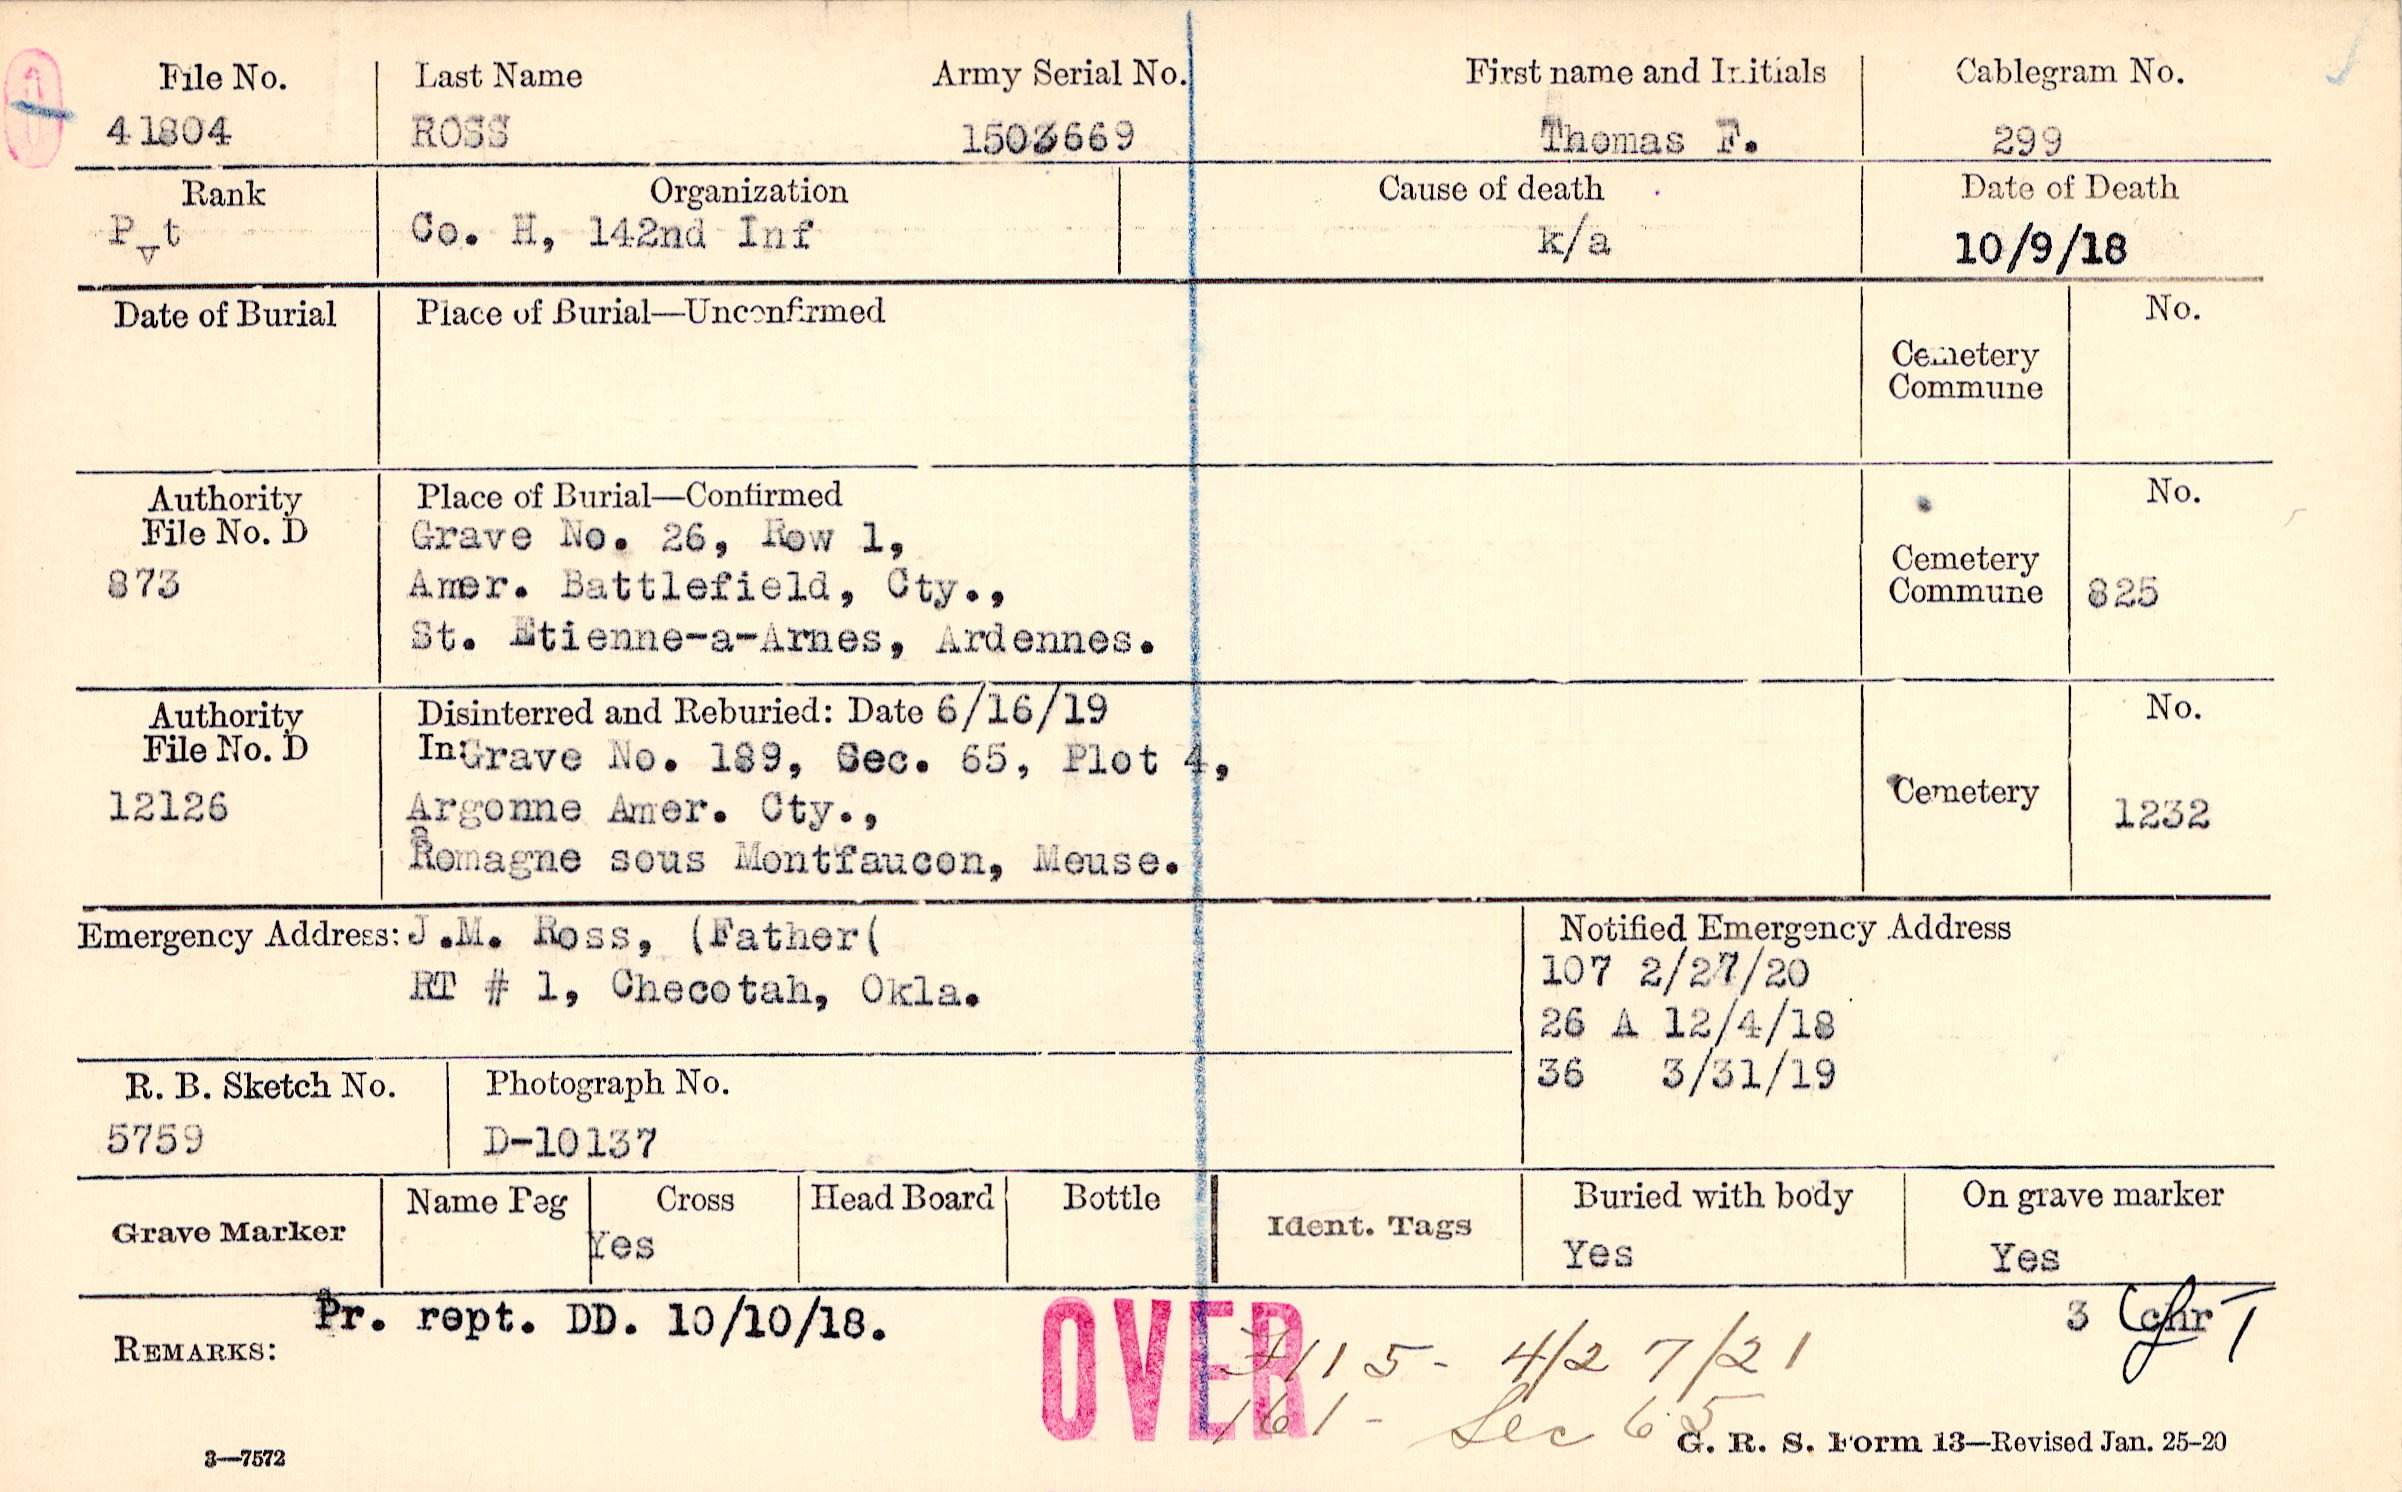 File No. Last Name Army Serial No. First name and Initials Cablegram No.
41804 ROSS 1503669 Thomas F. 299
Rank Organization Cause of death Date of Death
Pvt Co. H, 142nd Inf k/a 10/9/18
Date of Burial Place of Burial—Unconfirmed No.
Cemetery
Commune
Authority Place of Burial—Confirmed No.
File No. D Grave No. 26, Row 1,
873 Amer. Battlefield, Cty., Cemetery
Commune 825
St. Etienne-a-Arnes, Ardennes.
Authority Disinterred and Reburied: Date 6/16/19 No.
File No. D In: Grave No. 189, Sec. 65, Plot 4,
12126 Argonne Amer. Cty., Cemetery 1232
Romagne sous Montfaucon, Meuse.
Emergency Address: J.M. Ross, (Father( Notified Emergency Address
107 2/27/20
RT # 1, Checotah, Okla.
26 A 12/4/18
36 3/31/19
R. B. Sketch No. Photograph No.
5759 D-10137
Grave Marker Name Peg Cross Head Board Bottle Ident. Tags Buried with body On grave marker
Yes Yes Yes
Pr. rept. DD. 10/10/18. 3 chr
REMARKS:
OVER
115- 4/27/21
161- Sec 65
3—7572 G. R. S. Form 13—Revised Jan. 25-20